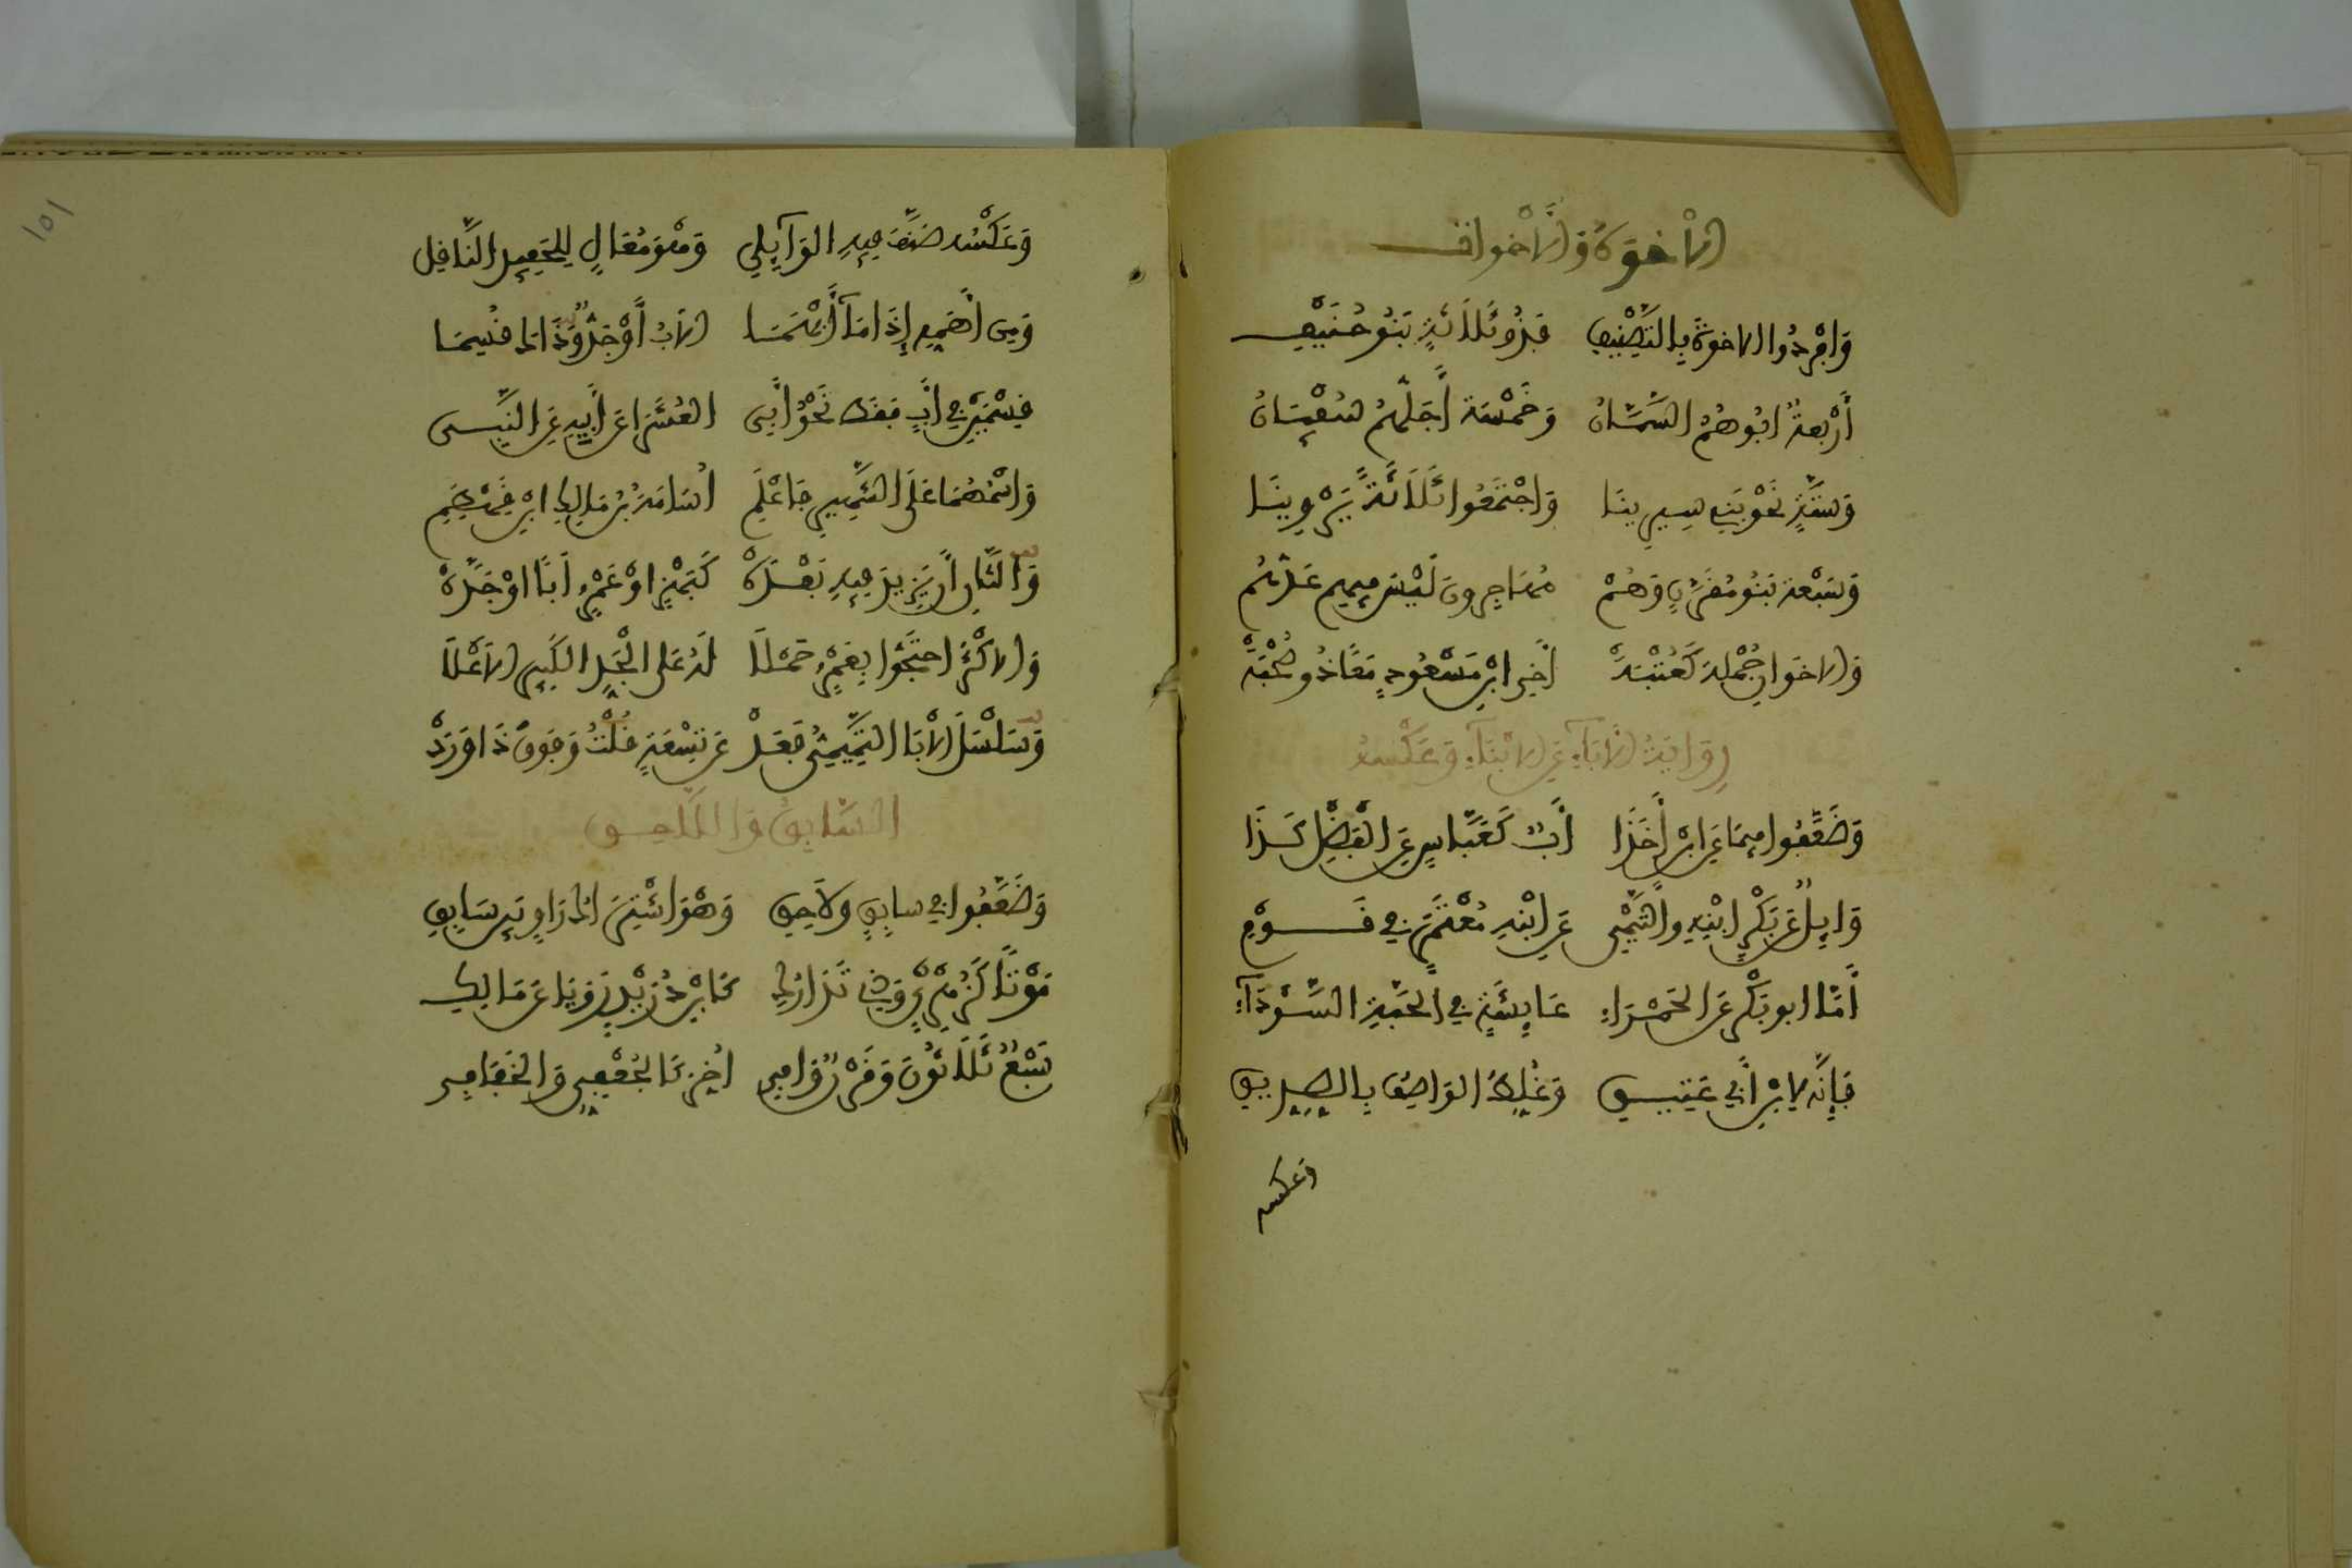 الاخْوَةُ وَالأَخْوات
وَأَفْرَدُوا الاخْوَةَ بِالتَّصْنِيفِ فَذُو ثَلاَثَةٍ بَنُو حُنَيْفِ
أَرْبَعَةٌ ابُوهُمُ السَّمَّانُ وَخَمْسَة أَجَلُّهُمْ سُفْيَانُ
وَسِتَّةٍ نَحْوُ بَنِي سِيرِينَا وَاجْتَمَعُوا ثَلاَثَةً يَرْوِينَا
وَسَبْعَة بَنُو مُقَرِّنٍ وَهُمْ مُهَاجِرُونَ لَيْسَ فِيهِم عَدُّهُم
وَالاخَوَانِ جُمْلَةٌ كَعُتْبَةْ أَخِي ابْنِ مَسْعُودٍ هُمَا ذُو صُحْبَةْ
رِوَايَةُ الأَبَآءِ عَنِ الابْنَآءِ وَعَكْسُهُ
وَصَنَّفُوا فِيمَا عَنِ ابْنٍ أَخَذَا أَبٌ كَعَبَّاسٍ عَنِ الْفَضْلِ كَذَا
وَايِلُ عَنْ بَكْرٍ ابْنِهِ وَالتَّيْمِي عَنِ ابْنِهِ مُعْتَمِرٍ فِي قَوْمِ
أَمَّا ابو بَكْرٍ عَنِ الحَمْرَاءِ عَايِشَةٍ فِي الحَبَّةِ السَّوْدَآءِ
فَإِنَّهُ لابْنِ أَبِي عَتِيقِ وَغُلِّطَ الوَاصِفُ بِالصِّدِّيقِ
وعكسه
١٥١
وَعَكْسُه صَنَّفَ فِيهِ الوَآيِلِي وَهْوَ مَعَالٍ لِلحَفِيدِ النَّاقِلِ
وَمِن أَهَمِّهِ إِذَا مَا أُبْهِمَا الاَبُ أَوْ جَدٌّ وَذَاكَ قُسِمَا
قِسْمَيْنِ عَن أَبٍ فَقَط نَحْوُ أَبِي العُشَرَا عَن أَبِيهِ عَنِ النَّبِي
وَاسْمُهُمَا عَلَى الشَّهِيرِ فَاعْلَمِ أُسَامَةُ بْنُ مَالِكِ ابْنِ قِهْطَمِ
وَالثَّانِ أَن يَزِيدَ فِيهِ بَعْدَهْ كَبَهْزٍ اوْ عَمْرٍو أَبًا اوْ جَدَّهْ
وَالاكْثَرُ احتَجُّوا بِعَمْرٍو حَمْلاَ لَهُ عَلى الجَدِّ الكَبِيرِ الأَعْلاَ
وَسَلْسَلَ الأَبَا التَّمِيمِيُّ فَعَدّْ عَن تِسْعَةٍ قُلْتُ وَفَوقَ ذَا وَرَدْ
السَّابِقُ وَاللاَّحِق
وَصَنَّفُوا فِي سابِقٍ ولاَحِقِ وَهْوَ اشْتِرَاكُ رَاوِيَيْنِ سَابِقِ
مَوْتًا كَزُهْرِيٍّ وَذِي تَدَارُكِ كَابْنِ دُوَيْدٍ رَوَيَا عَن مَالِكِ
سَبْعٌ ثَلاَثُونَ وَقَرْنٌ وَافِي اُخِّرَ كَالجُعْفِيِّ وَالخَفَّافِ